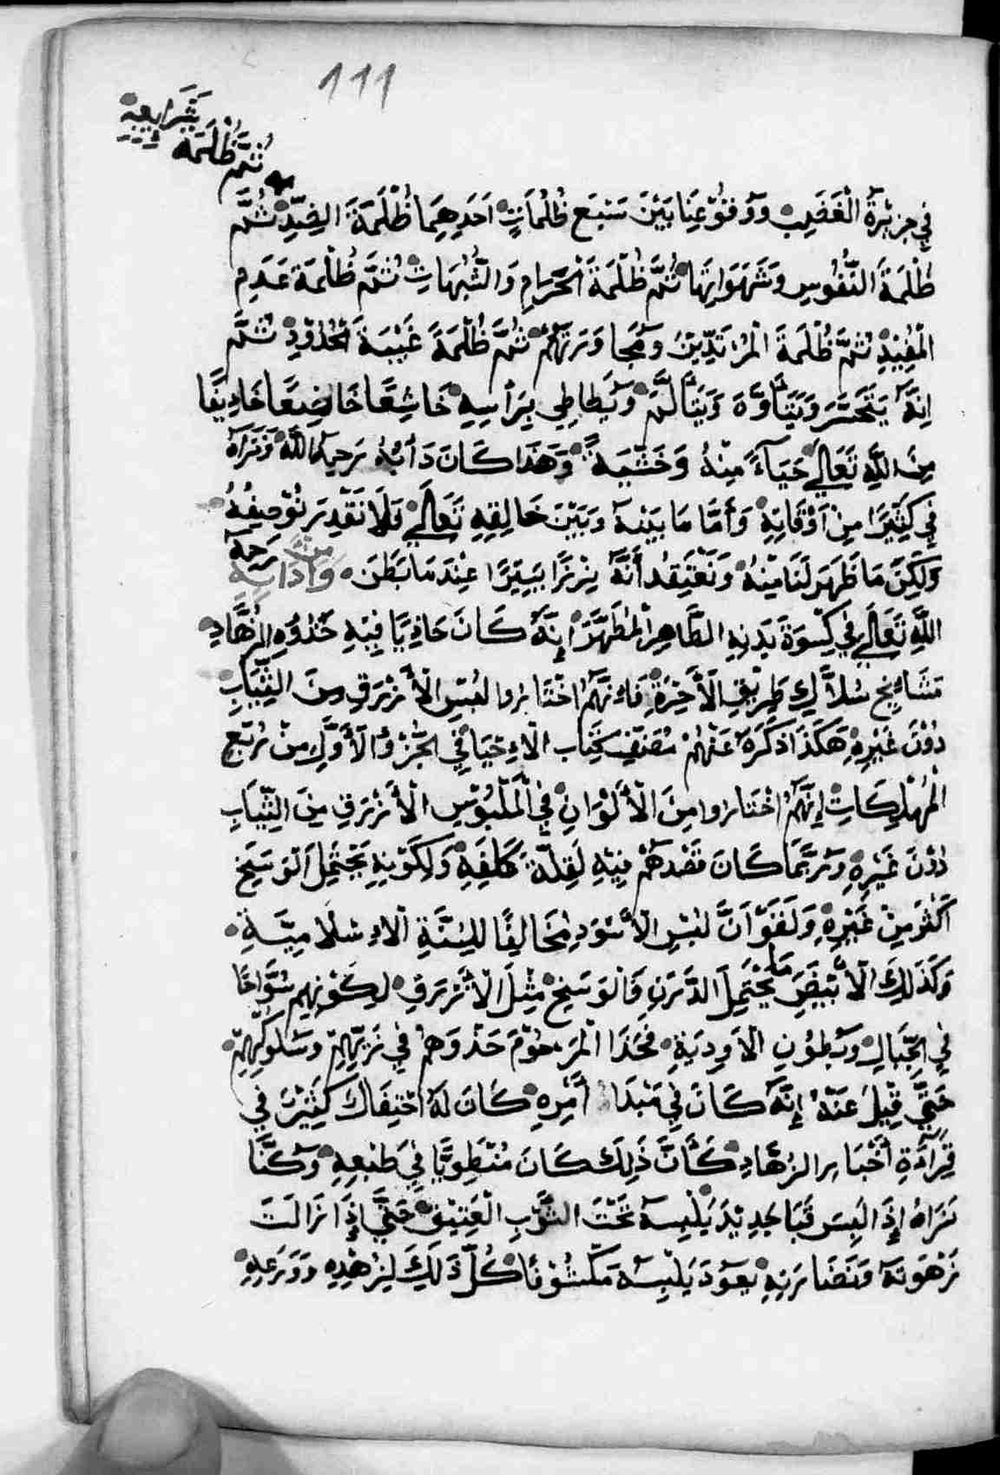 111
ثم ظلمة
بشرايعه
في جزيرة الغضب ووقوعنا بين سبع ظلمات احدهما ظلمة الضد ثم
ظلمة النفوس وشهواتها ثم ظلمة الحرام والشبهات ثم ظلمة عدم
المفيد ثم ظلمة المرتدين ومجاورتهم ثم ظلمة غيبة الحدود ثم
انه يتحسر ويتأوه ويتألم ويطاطي برأسه خاشعا خاضعا خايفا
من الله تعالى حياء منه وخشية وهذا كان دأبه رحمه الله ونراه
في كثيرا من اوقاته وأما ما بينه وبين خالقه تعالى فلا نقدر نوصفه
ولكن ما ظهر لنا منه ونعتقد أنه نزرا يسيرا عند ما بطن وادابه رحمة
الله تعالى في كسوة بدنه الطاهر المطهر انه كان حاذيا فيه حذوه الزهاد
مشايخ سلاك طريق الأخرة فانهم اختاروا لبس الأزرق من الثياب
دون غيره هكذا ذكره عنهم مصنف كتاب الاحيا في الجزؤ الأول من ربع
المهلكات إنهم اختاروا من الألوان في الملبوس الأزرق من الثياب
دون غيره وربما كان قصدهم فيه لقلة كلفة ولكونه يحتمل الوسخ
أكثر من غيره ولقوا ان لبس الأسود مخالفا للسنة الاسلامية
وكذلك الأبيض ما يحتمل الدرن والوسخ مثل الأزرق لكونهم سواحا
في الجبال وبطون الاودية فحذا المرحوم حذوهم في زيهم وسلوكهم
حتى قيل عنه إنه كان في مبدأ أمره كان له احتفال كثير في
قرآءة أخبار الزهاد كأن ذلك كان منطويا في طبعه وكنا
نراه إذا لبس قبا جديد يلبسه تحت الثوب العتيق حتى إذا زالت
زهوته ونضارته يعود يلبسه مكشوفا كل ذلك لزهده وورعه